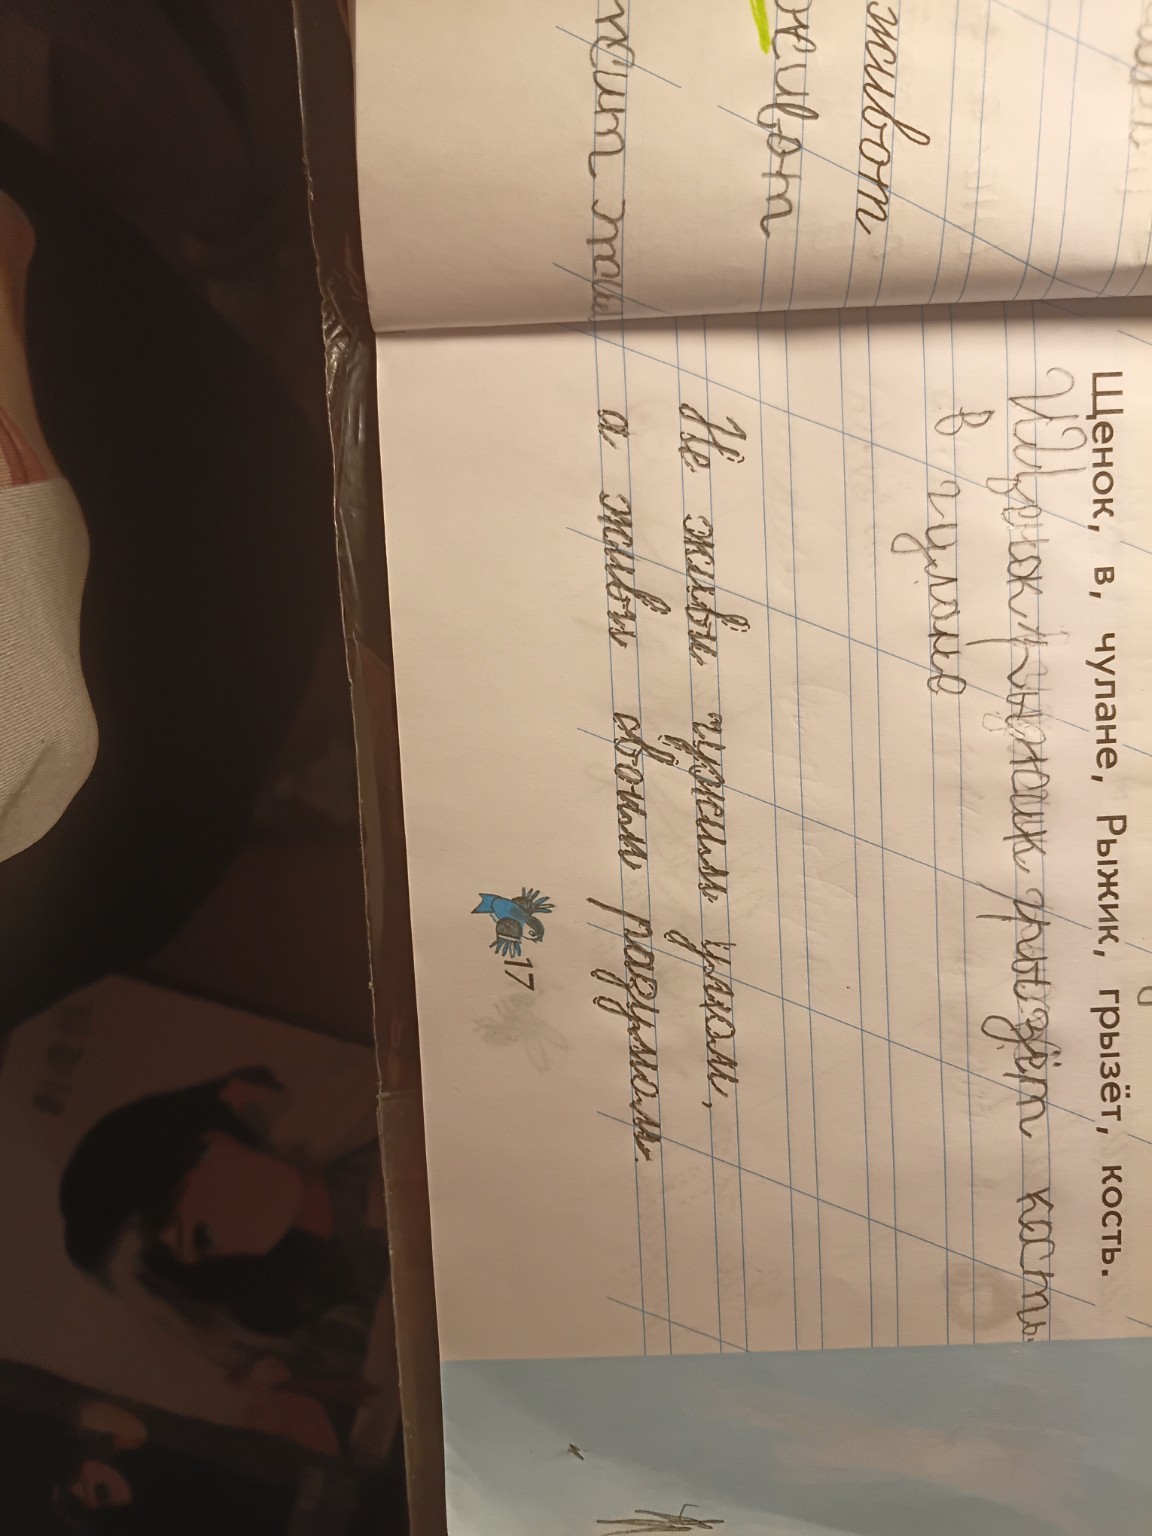 живот
живот
Щенок, в, чулане, Рыжик, грызёт, кость.
Щенок Рыжик грызёт кость
в чулане
Не живи чужим умом,
а живи своим разумом.
17